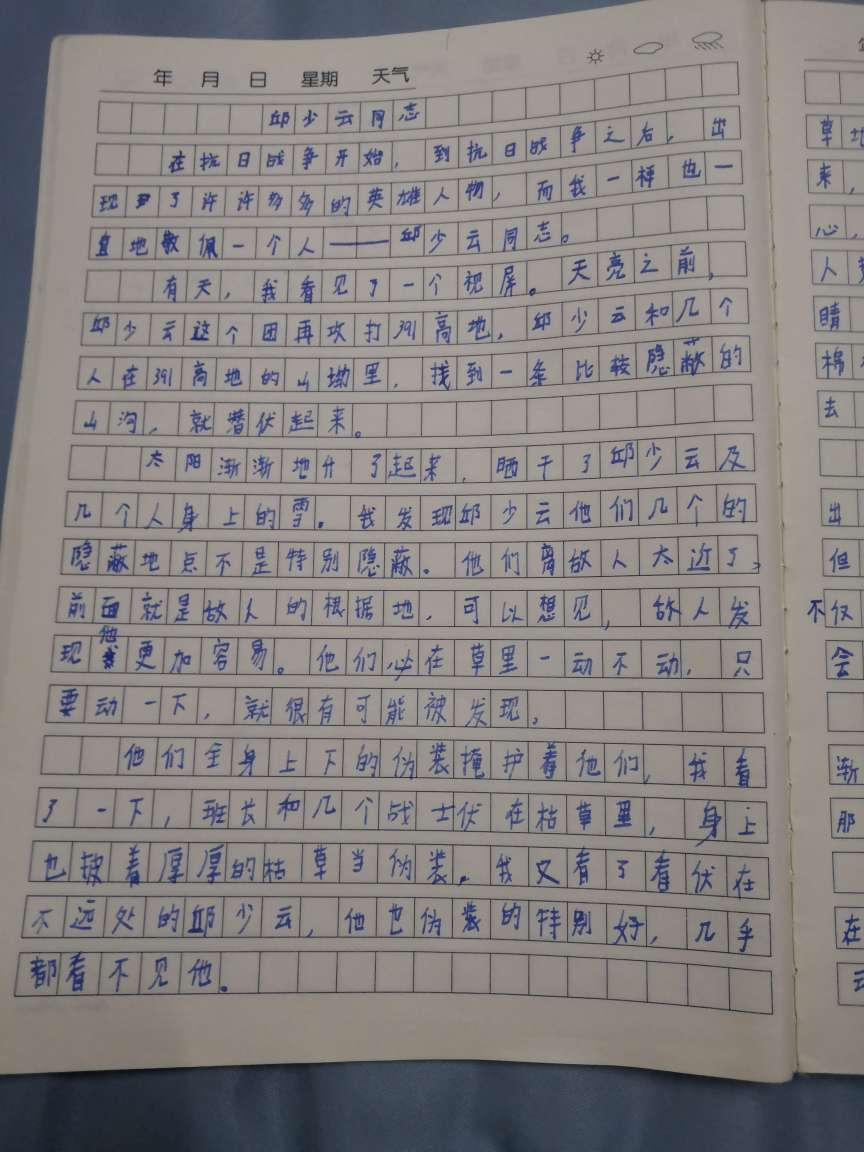 年 月 日 星期 天气
邱少云同志
在抗日战争开始，到抗日战争之后，出
现了许许多多的英雄人物，而我一样也一
直地敬佩一个人——邱少云同志。
有天，我看见了一个视屏。天亮之前，
邱少云这个团再攻打391高地，邱少云和几个
人在391高地的山坳里，找到一条比较隐蔽的
山沟，就潜伏起来。
太阳渐渐地升了起来，晒干了邱少云及
几个人身上的雪。我发现邱少云他们几个的
隐蔽地点不是特别隐蔽。他们离敌人太近了，
前面就是敌人的根据地，可以想见，敌人发
现他更加容易。他们必在草里一动不动，只
要动一下，就很有可能被发现。
他们全身上下的伪装掩护着他们，我看
了一下，班长和几个战士伏在枯草里，身上
也披着厚厚的枯草当伪装。我又看了看伏在
不远处的邱少云，他也伪装的特别好，几乎
都看不见他。
草地
来，
心，
人
睛
棉
去
出
但
不仅
会
渐
那
在
云